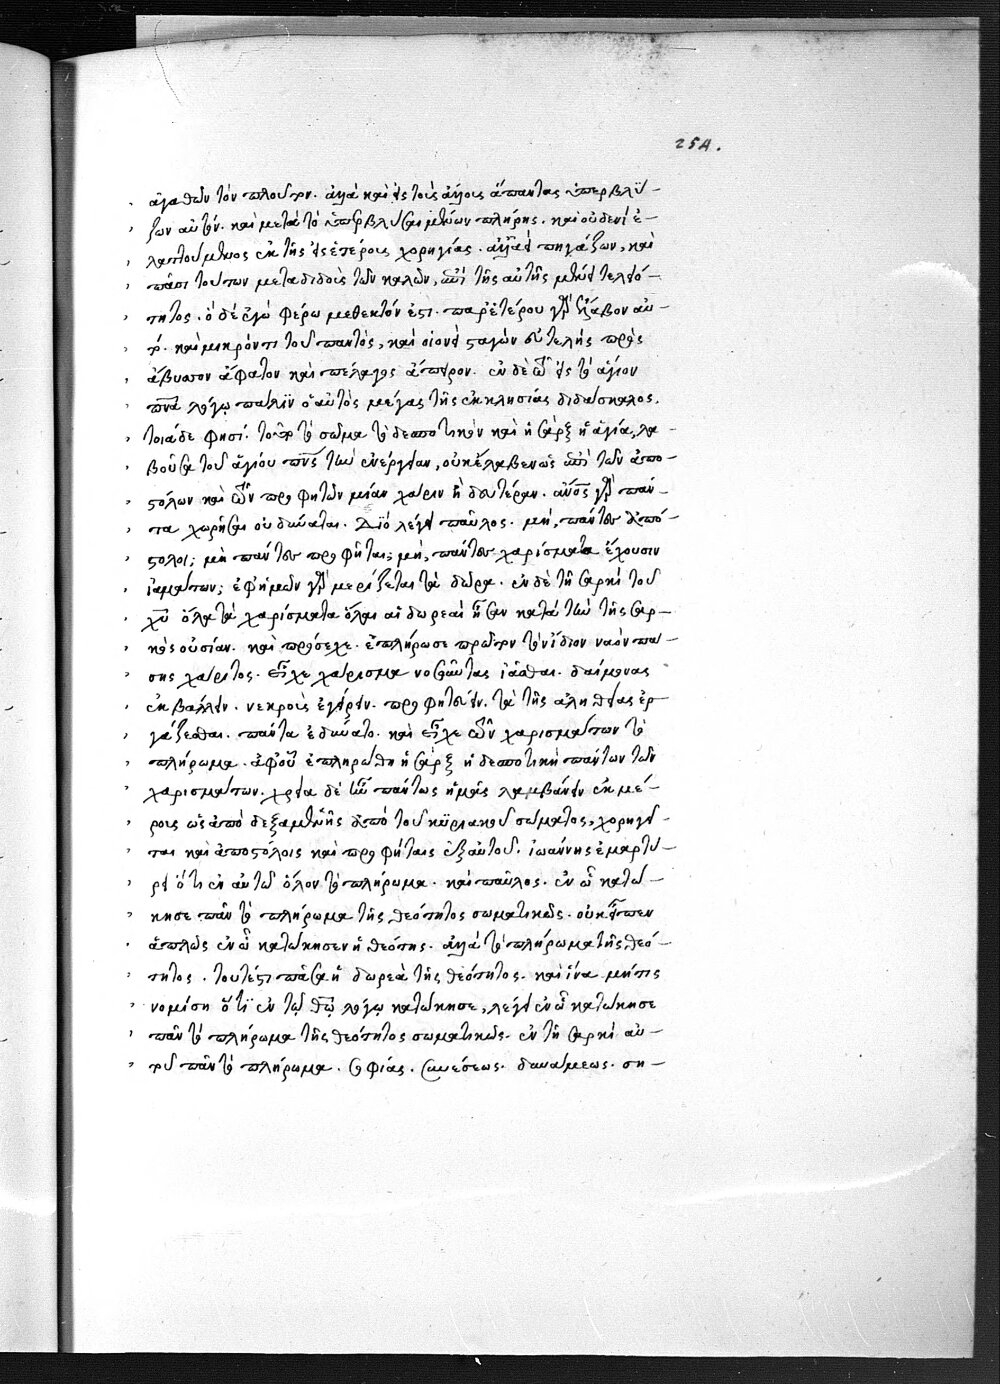 254.
ἀγαθῶν τὸν πλοῦτον. ἀλλὰ καὶ εἰς τοὺς ἄλλους ἅπαντας ὑπερβλύ-
ζων αὐτόν. καὶ μετὰ τὸ ὑπερβλύσαι μένων πλήρης. καὶ οὐδενὶ ἐ-
λαττούμενος ἐκ τῆς εἰς ἑτέρους χορηγίας. ἀλλ' ἀεὶ πηγάζων, καὶ
πᾶσι τούτων μεταδιδοὺς τῶν καλῶν, ἐπὶ τῆς αὐτῆς μένει τελειό-
τητος. ὁ δὲ ἐγὼ φέρω μεθεκτόν ἐστι. παρ' ἑτέρου γὰρ ἔλαβον αὐ-
τό. καὶ μικρόν τι τοῦ παντὸς, καὶ οἱονεὶ σταγὼν εὐτελὴς πρὸς
ἄβυσσον ἄφατον καὶ πέλαγος ἄπειρον. ἐν δὲ τῷ εἰς τὸ ἅγιον
πνα λόγῳ πάλιν ὁ αὐτὸς μέγας τῆς ἐκκλησίας διδάσκαλος.
τοιάδε φησί. τοῦτο τὸ σῶμα τὸ δεσποτικὸν καὶ ἡ σὰρξ ἡ ἁγία, λα-
βοῦσα τοῦ ἁγίου πνς τὴν ἐνέργειαν, οὐκ ἔλαβεν ὡς ἐπὶ τῶν ἀπο-
στόλων καὶ τῶν προφητῶν μίαν χάριν ἢ δευτέραν. ἄνος γὰρ πάν-
τα χωρῆσαι οὐ δύναται. Διὸ λέγει παῦλος. μὴ, πάντες ἀπό-
στολοι; μὴ πάντες προφῆται; μὴ, πάντες χαρίσματα ἔχουσιν
ἰαμάτων; ἐφ' ἡμῶν γὰρ μερίζεται τὰ δῶρα. ἐν δὲ τῇ σαρκὶ τοῦ
χυ ὅλα τὰ χαρίσματα ὅλαι αἱ δωρεαὶ ἦσαν κατὰ τὴν τῆς σαρ-
κὸς οὐσίαν. καὶ πρόσεχε. ἐπλήρωσε πρῶτον τὸν ἴδιον ναὸν πά-
σης χάριτος. εἶχε χάρισμα νοσοῦντας ἰᾶσθαι. δαίμονας
ἐκβάλλειν. νεκροὺς ἐγείρειν. προφητεύειν. τὰ τῆς ἀληθείας ἐρ
γάζεσθαι. πάντα ἐδύνατο. καὶ εἶχε τῶν χαρισμάτων τὸ
πλήρωμα. ἀφ' οὗ ἐπληρώθη ἡ σὰρξ ἡ δεσποτικὴ πάντων τῶν
χαρισμάτων. χρεία δὲ ἦν πάντως ἡμᾶς λαμβάνειν ἐκ μέ-
ρους ὡς ἀπὸ δεξαμενῆς ἀπὸ τοῦ κυριακοῦ σώματος, χορηγεῖ-
ται καὶ ἀποστόλοις καὶ προφήταις ἐξ αὐτοῦ. ἰωάννης ἐμαρτύ-
ρει ὅτι ἐν αὐτῷ ὅλον τὸ πλήρωμα. καὶ παῦλος. ἐν ᾧ κατῴ-
κησε πᾶν τὸ πλήρωμα τῆς θεότητος σωματικῶς. οὐκ εἶπεν
ἁπλῶς ἐν ᾧ κατῴκησεν ἡ θεότης. ἀλλὰ τὸ πλήρωμα τῆς θεό-
τητος. τουτέστι πᾶσα ἡ δωρεὰ τῆς θεότητος. καὶ ἵνα μή τις
νομίσῃ ὅτι ἐν τῷ θῷ λόγῳ κατῴκησε, λέγει ἐν ᾧ κατῴκησε
πᾶν τὸ πλήρωμα τῆς θεότητος σωματικῶς. ἐν τῇ σαρκὶ αὐ-
τοῦ πᾶν τὸ πλήρωμα. σοφίας. συνέσεως. δυνάμεως. ση-